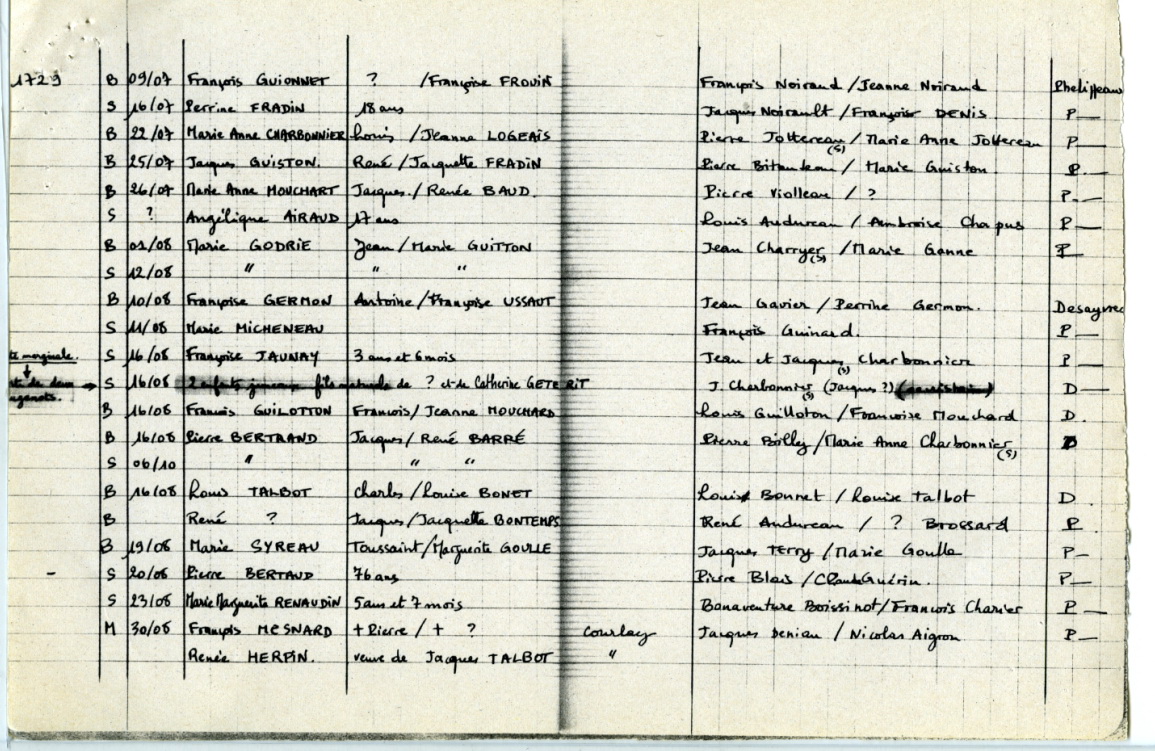 1729 B 09/07 François GUIONNET ? /Françoise FROUIN François Noiraud /Jeanne Noiraud Phelippeau
S 16/07 Perrine FRADIN 18 ans Jacques Noirault /Françoise DENIS P—
B 22/07 Marie Anne CHARBONNIER Louis /Jeanne LOGEAIS Pierre Jottereau (s) /Marie Anne Jottereau P—
B 25/07 Jacques GUISTON. René /Jacquette FRADIN Pierre / Marie Guiston P.—
B 26/07 Marie Anne MOUCHART Jacques / Renée BAUD. Pierre Violleau / ? P.—
S ? Angélique AIRAUD 17 ans Louis Audureau / Ambroise Chapus P—
B 01/08 Marie GODRIE Jean / Marie GUITTON Jean Charryer (s) /Marie Ganne P—
S 12/08 " " "
B 10/08 Françoise GERMON Antoine /Françoise USSAUT Jean Gavier / Perrine Germon.
S 11/08 Marie MICHENEAU François Guinard. P—
marginale. S 16/08 Françoise JAUNAY 3 ans et 6 mois Jean et Jacques (s) Charbonnier P—
de deux S 16/08 2 enfants jumeaux fils naturels de ? et de Catherine GETERIT J. Charbonnier (s) (Jacques ?) D—
B 16/08 François GUILOTTON François/Jeanne MOUCHARD Louis Guilloton /Françoise Mouchard D.
B 16/08 Pierre BERTRAND Jacques/ René BARRÉ Pierre Billy /Marie Anne Charbonnier (s) D
S 06/10 " " "
B 16/08 Louis TALBOT Charles /Louise BONET Louis Bonnet / Louise Talbot D.
B René ? Jacques/Jacquette BONTEMPS René Audureau / ? Brossard P
B 19/08 Marie SYREAU Toussaint/Marguerite GOULLE Jacques Terry /Marie Goulle P—
- S 20/08 Pierre BERTAUD 76 ans Pierre Blais /Claude Guérin. P—
S 23/08 Marie Marguerite RENAUDIN 5 ans et 7 mois Bonaventure Boissinot/François Charier P—
M 30/08 François MESNARD + Pierre / + ? Courlay Jacques Deniau / Nicolas Aigron P—
Renée HERPIN. veuve de Jacques TALBOT "